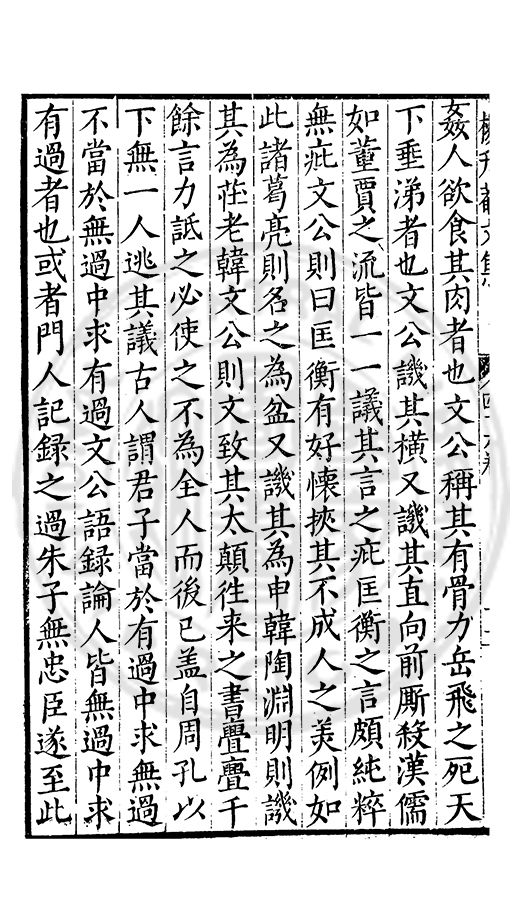 姦人欲食其肉者也文公稱其有骨力岳飛之死天
下垂涕者也文公譏其橫又譏其直向前厮殺漢儒
如董賈之流皆一一議其言之疵匡衡之言頗純粹
無疵文公則曰匡衡有好懷挾其不成人之美例如
此諸葛亮則名之為盆又譏其為申韓陶淵明則譏
其為荘老韓文公則文致其太顛徃来之書亹亹千
餘言力詆之必使之不為全人而後已盖自周孔以
下無一人逃其議古人謂君子當於有過中求無過
不當於無過中求有過文公語録論人皆無過中求
有過者也或者門人記録之過朱子無忠臣遂至此